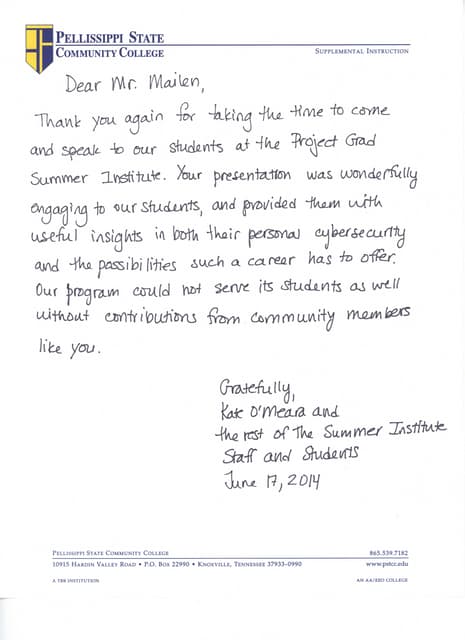 PELLISSIPPI STATE
COMMUNITY COLLEGE
SUPPLEMENTAL INSTRUCTION
Dear Mr. Mailen,
Thank you again for taking the time to come
and speak to our students at the Project Grad
Summer Institute. Your presentation was wonderfully
engaging to our students, and provided them with
useful insights in both their personal cybersecurity
and the possibilities such a career has to offer.
Our program could not serve its students as well
without contributions from community members
like you.
Gratefully,
Kate O'Meara and
the rest of The Summer Institute
Staff and Students
June 17, 2014
PELLISSIPPI STATE COMMUNITY COLLEGE 865.539.7182
10915 HARDIN VALLEY ROAD • P.O. BOX 22990 • KNOXVILLE, TENNESSEE 37933-0990 www.pstcc.edu
A TBR INSTITUTION AN AA/EEO COLLEGE